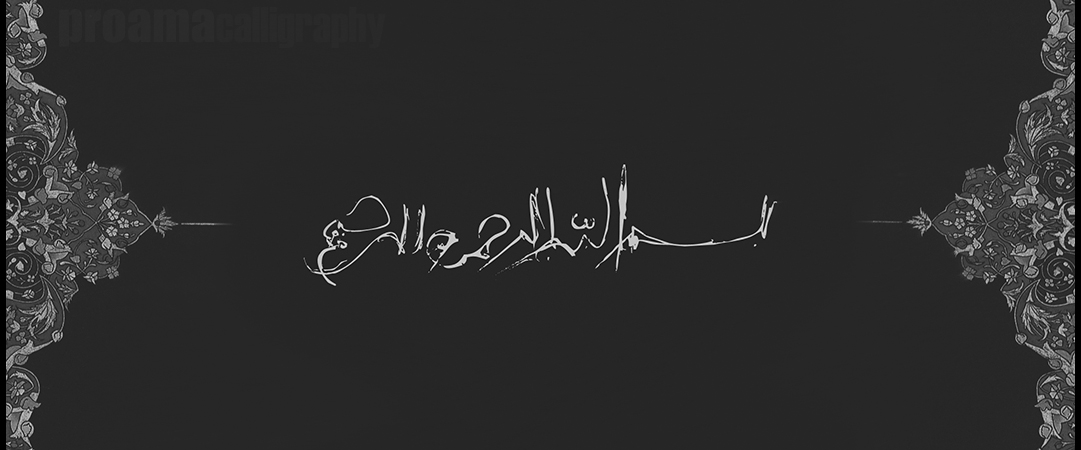 proamacalligraphy
بسم الله الرحمن الرحيم